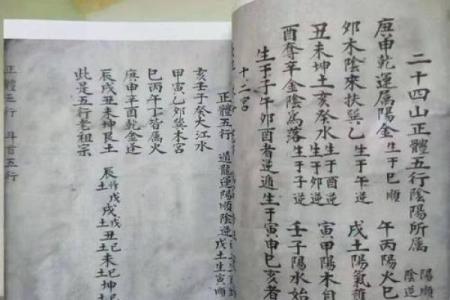 二十四山正體五行陰陽所属
庚申乾運属陽金 生于巳順 午丙陽火巳
卯木陰來扶巽乙 生于午逆 戌土陽氣
丑未坤土亥癸水 生于酉逆 生于卯逆 寅甲陽木自
酉奪辛金陰萬落 生于子逆 壬子陽水始
十二宮 生于子午卯酉者逆遁 生于寅申巳亥者
正體五行 遁龍運陽順陰逆戊土生寅順
亥壬子癸大江水
甲寅乙卯巽木宮
巳丙午丁皆属火
庚申辛酉乾金逢
辰戌丑未坤艮土
此是五行老祖宗
正體五行 斗首五行